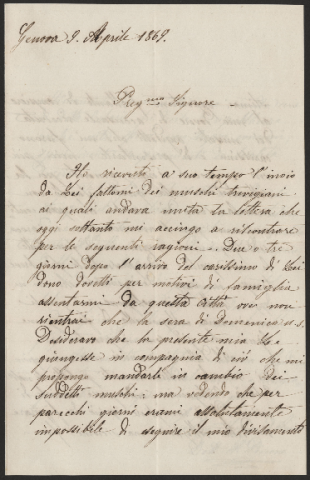 Genova 9. Aprile 1869.
Preg.mo Signore
Ho ricevuto a suo tempo l'invio
da Lei fattomi dei muschi trevigiani
ai quali andava unita la lettera che
oggi soltanto mi accingo a riscontrare
per le seguenti ragioni. Due o tre
giorni dopo l'arrivo del carissimo di Lei
dono dovetti per motivi di famiglia
assentarmi da questa città ove non
rientrai che la sera di Domenica u.s.
Desideravo che la presente mia Le
giungesse in compagnia di ciò che mi
propongo mandarle in cambio dei
suddetti muschi; ma vedendo che per
parecchi giorni erami assolutamente
impossibile di eseguire il mio divisamento